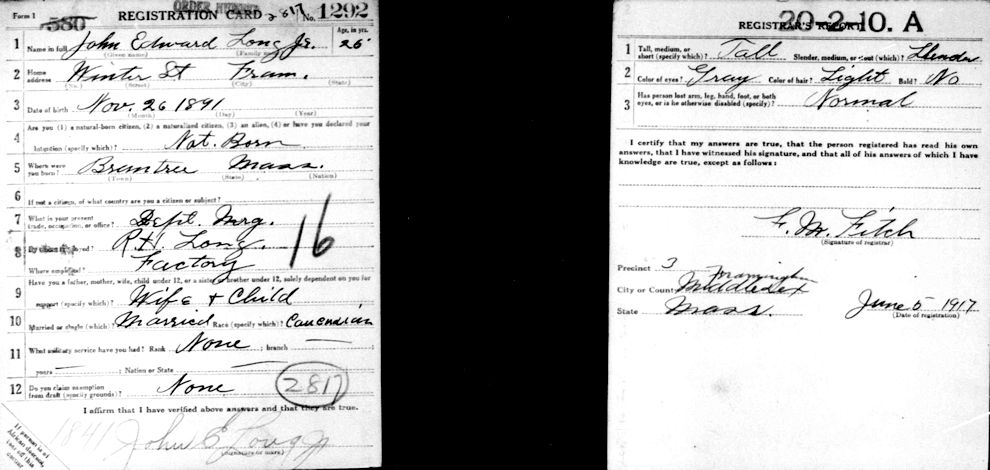 Form 1
580
ORDER NUMBER
REGISTRATION CARD 2817 No. 1292
1 Name in full John Edward Long Jr. Age, in yrs. 25
(Given name) (Family name)
2 Home address Winter St Fram.
(No.) (Street) (City) (State)
3 Date of birth Nov. 26 1891
(Month) (Day) (Year)
4 Are you (1) a natural-born citizen, (2) a naturalized citizen, (3) an alien, (4) or have you declared your
intention (specify which)? Nat. Born
5 Where were you born? Braintree Mass.
(Town) (State) (Nation)
6 If not a citizen, of what country are you a citizen or subject?
7 What is your present trade, occupation, or office? Dept. Mrg.
8 By whom employed? R.H. Long.
Where employed? Factory
16
9 Have you a father, mother, wife, child under 12, or a sister or brother under 12, solely dependent on you for
support (specify which)? Wife + Child
10 Married or single (which)? Married Race (specify which)?
11 What military service have you had? Rank None ; branch —
years — ; Nation or State —
12 Do you claim exemption from draft (specify grounds)? None
2817
I affirm that I have verified above answers and that they are true.
1841 John E Long Jr
(Signature or mark)
If person is of
African descent,
corner
20-2-10. A
REGISTRAR'S REPORT
1 Tall, medium, or short (specify which)? Tall Slender, medium, or stout (which)? Slender
2 Color of eyes? Gray Color of hair? Light Bald? No
3 Has person lost arm, leg, hand, foot, or both eyes, or is he otherwise disabled (specify)? Normal
I certify that my answers are true, that the person registered has read his own
answers, that I have witnessed his signature, and that all of his answers of which I have
knowledge are true, except as follows:
F. M. Fitch
(Signature of registrar)
Precinct 3
Framingham
City or County Middlesex
State Mass.
June 5 1917
(Date of registration)